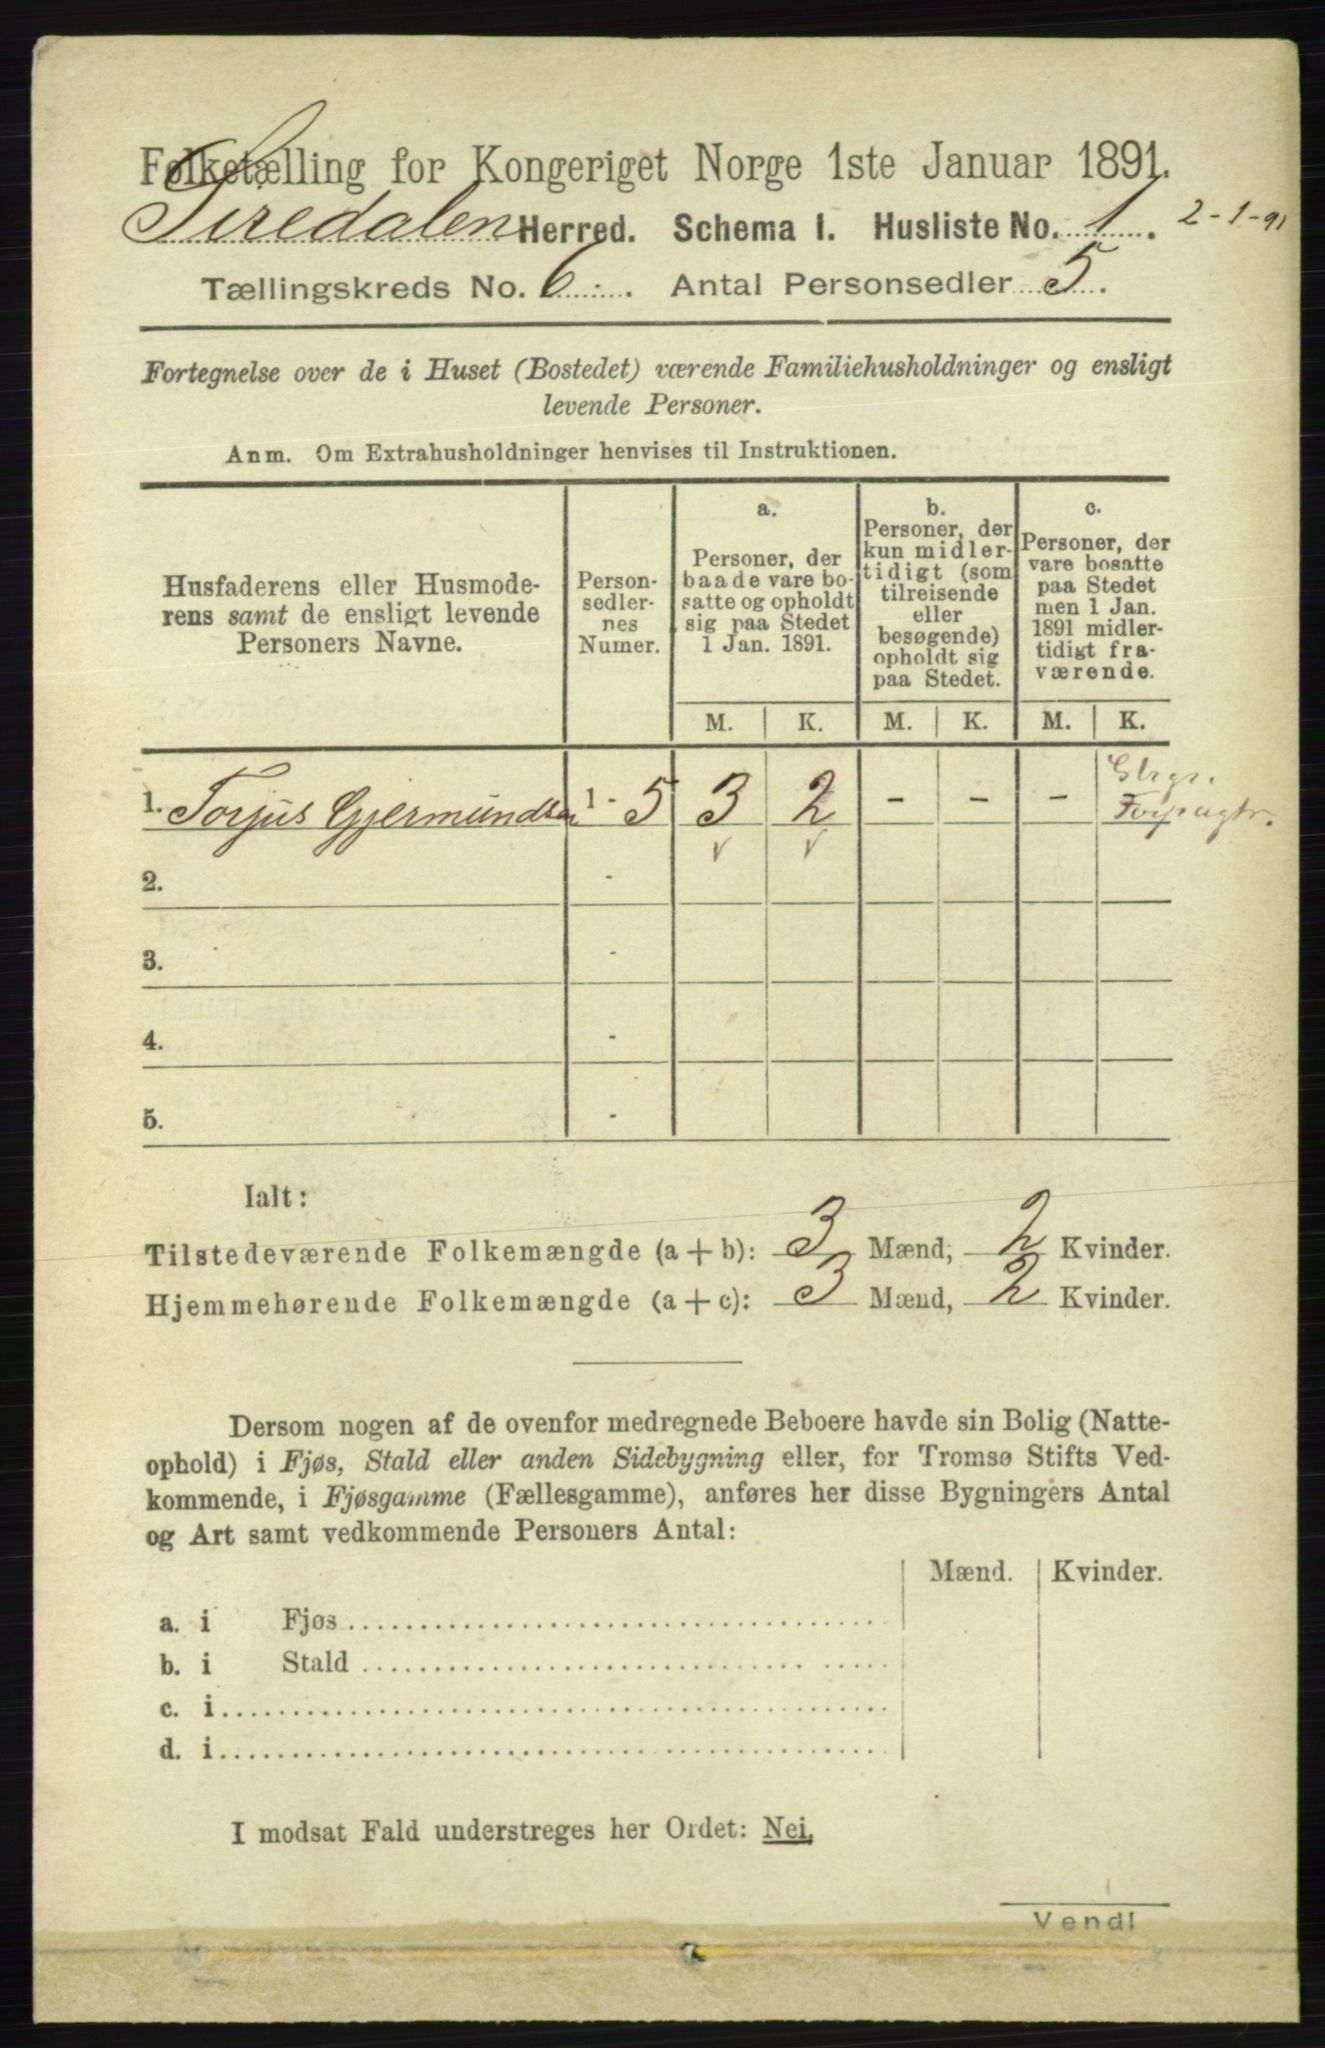 Folketælling for Kongeriget Norge 1ste Januar 1891.
Siredalen Herred. Schema I. Husliste No. 1. 2-1-91
Tællingskreds No. 6. Antal Personsedler 5.
Fortegnelse over de i Huset (Bostedet) værende Familiehusholdninger og ensligt
levende Personer.
Anm. Om Extrahusholdninger henvises til Instruktionen.
Husfaderens eller Husmode-
rens samt de ensligt levende
Personers Navne.
Person-
sedler-
nes
Numer.
a.
Personer, der
baade vare bo-
satte og opholdt
sig paa Stedet
1 Jan. 1891.
b.
Personer, der
kun midler-
tidigt (som
tilreisende
eller
besøgende)
opholdt sig
paa Stedet.
c.
Personer, der
vare bosatte
paa Stedet
men 1 Jan.
1891 midler-
tidigt fra-
værende.
M. K. M. K. M. K.
1. Torjus Gjermundsen 1 - 5 3 2 - - -
2. -
3. -
4. -
5. -
Ialt:
Tilstedeværende Folkemængde (a + b): 3 Mænd, 2 Kvinder.
Hjemmehørende Folkemængde (a + c): 3 Mænd, 2 Kvinder.
Dersom nogen af de ovenfor medregnede Beboere havde sin Bolig (Natte-
ophold) i Fjøs, Stald eller anden Sidebygning eller, for Tromsø Stifts Ved-
kommende, i Fjøsgamme (Fællesgamme), anføres her disse Bygningers Antal
og Art samt vedkommende Personers Antal:
Mænd. Kvinder.
a. i Fjøs
b. i Stald
c. i
d. i
I modsat Fald understreges her Ordet: Nei.
Vend!